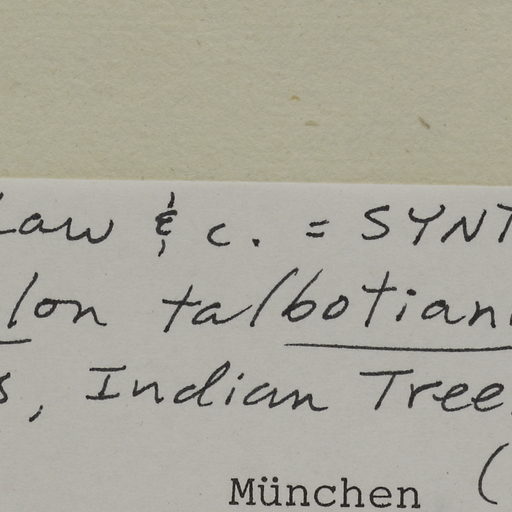 Law & c. = SYNT
lon talbotian
s, Indian Tree
München (